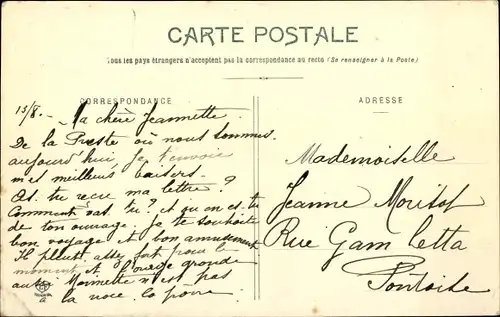 CARTE POSTALE
Tous les pays étrangers n'acceptent pas la correspondance au recto (Se renseigner à la Poste)
CORRESPONDANCE
ADRESSE
13/8. - Ma chère Jeannette.
De la Preste où nous sommes
aujourd'hui je t'envoie
mes meilleurs baisers.
As. tu reçu ma lettre?
Comment vas. tu? et qu'en es. tu
de ton ouvrage. Je te souhaite
bon voyage et bon amusement
Il pleut assez fort pour le
moment et l'orage gronde
aussi Mormette n'est pas
à la noce. la pauvre.
Mademoiselle
Jeanne Morisot
Rue Gambetta
Pontoise